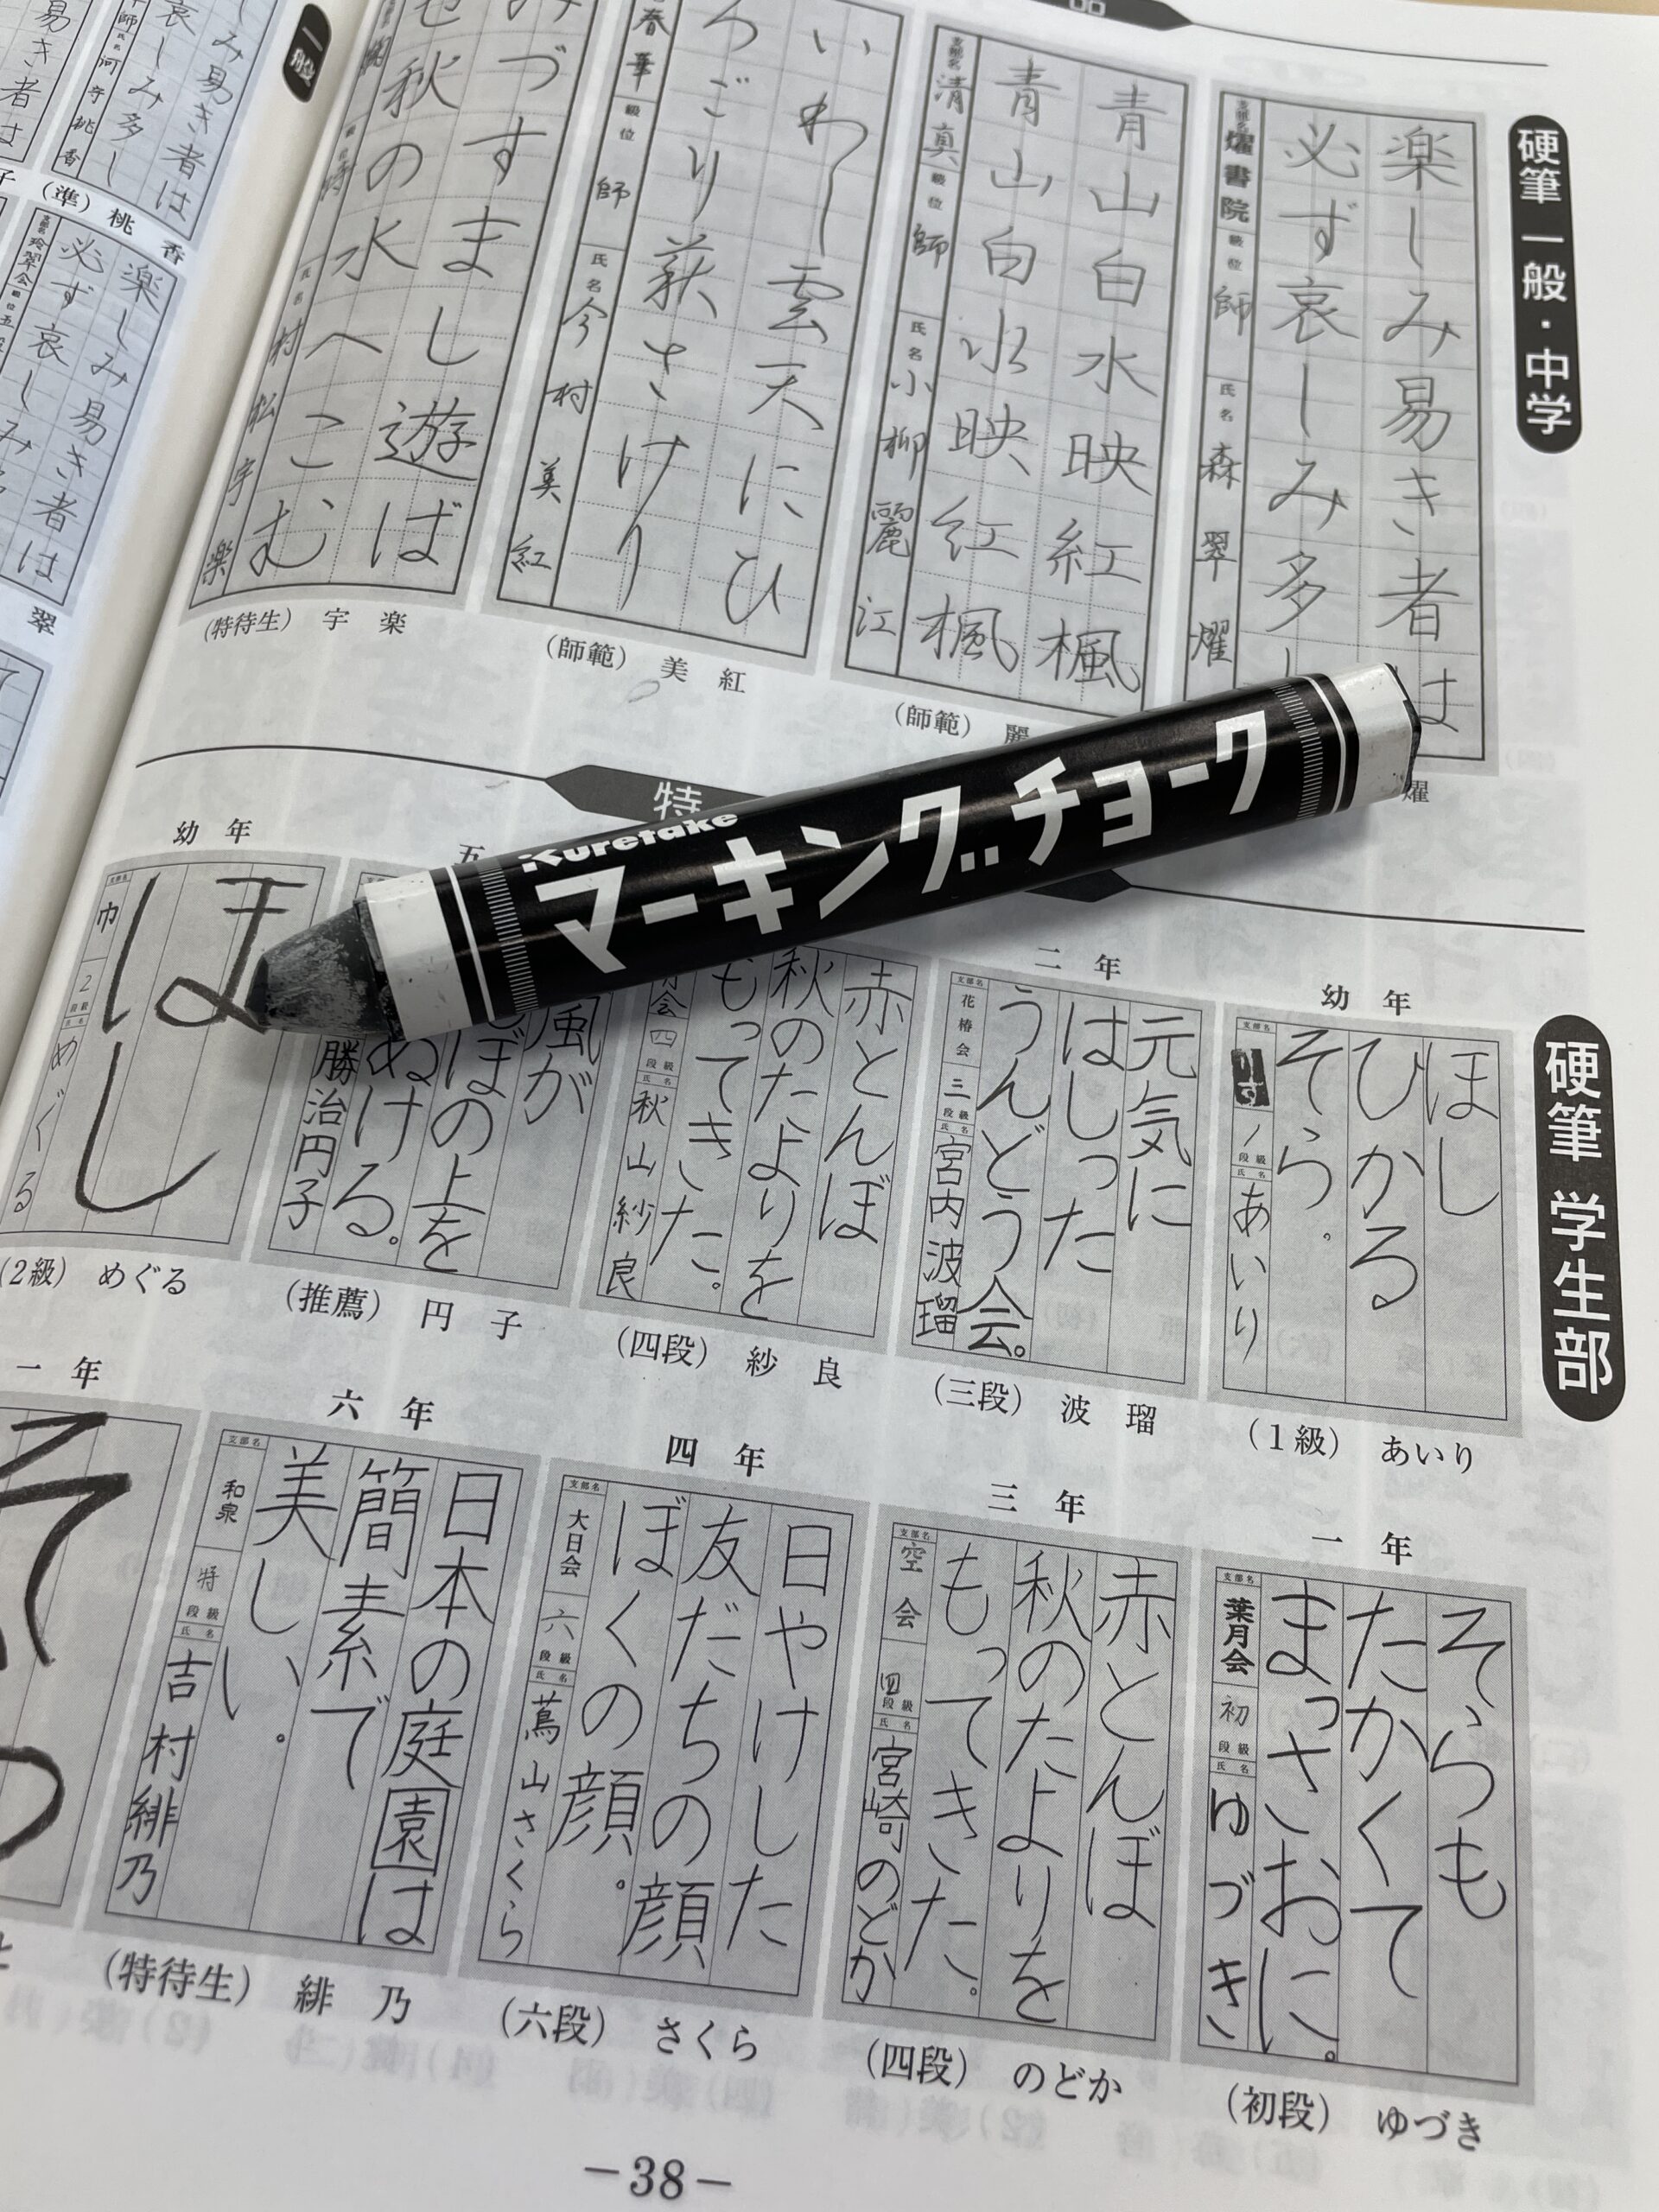 硬筆 一般・中学
楽しみ易き者は
必ず哀しみ多し
支部名 燿書院 級位 師 氏名 森翠燿
燿
青山白水映紅楓
青山白水映紅楓
支部名 清真 級位 師 氏名 小柳麗江
(師範) 麗
いわし雲天にひ
ろごり萩さけり
春華 級位 師 氏名 今村美紅
(師範) 美紅
みづすまし遊ばせ
秋の水へこむ
氏名 村松宇楽
(特待生) 宇楽
特
Kuretake
マーキングチョーク
硬筆 学生部
幼年
ほし
ひかる
そら。
支部名 1 段級 氏名 あいり
(1級) あいり
二年
元気に
はしった
うんどう会。
支部名 花椿会 三 段級 氏名 宮内波瑠
(三段) 波瑠
赤とんぼ
秋のたよりを
もってきた。
四 段級 氏名 秋山紗良
(四段) 紗良
五
風が
ぼの上を
ぬける。
勝治円子
(推薦) 円子
幼年
ほし
支部名 巾 2 段級 氏名 めぐる
(2級) めぐる
一年
そらも
たかくて
まっさおに。
支部名 葉月会 初 段級 氏名 ゆづき
(初段) ゆづき
三年
赤とんぼ
秋のたよりを
もってきた。
支部名 空会 四 段級 氏名 宮崎のどか
(四段) のどか
四年
日やけした
友だちの顔
ぼくの顔。
支部名 大日会 六 段級 氏名 蔦山さくら
(六段) さくら
六年
日本の庭園は
簡素で
美しい。
支部名 和泉 特 段級 氏名 吉村緋乃
(特待生) 緋乃
一年
そ
楽しみ易き者は
必ず哀しみ
支部名 玲翠会 級位 五段
翠
み易き者は
哀しみ多し
氏名 河守桃香
(準) 桃香
易き者は
－38－